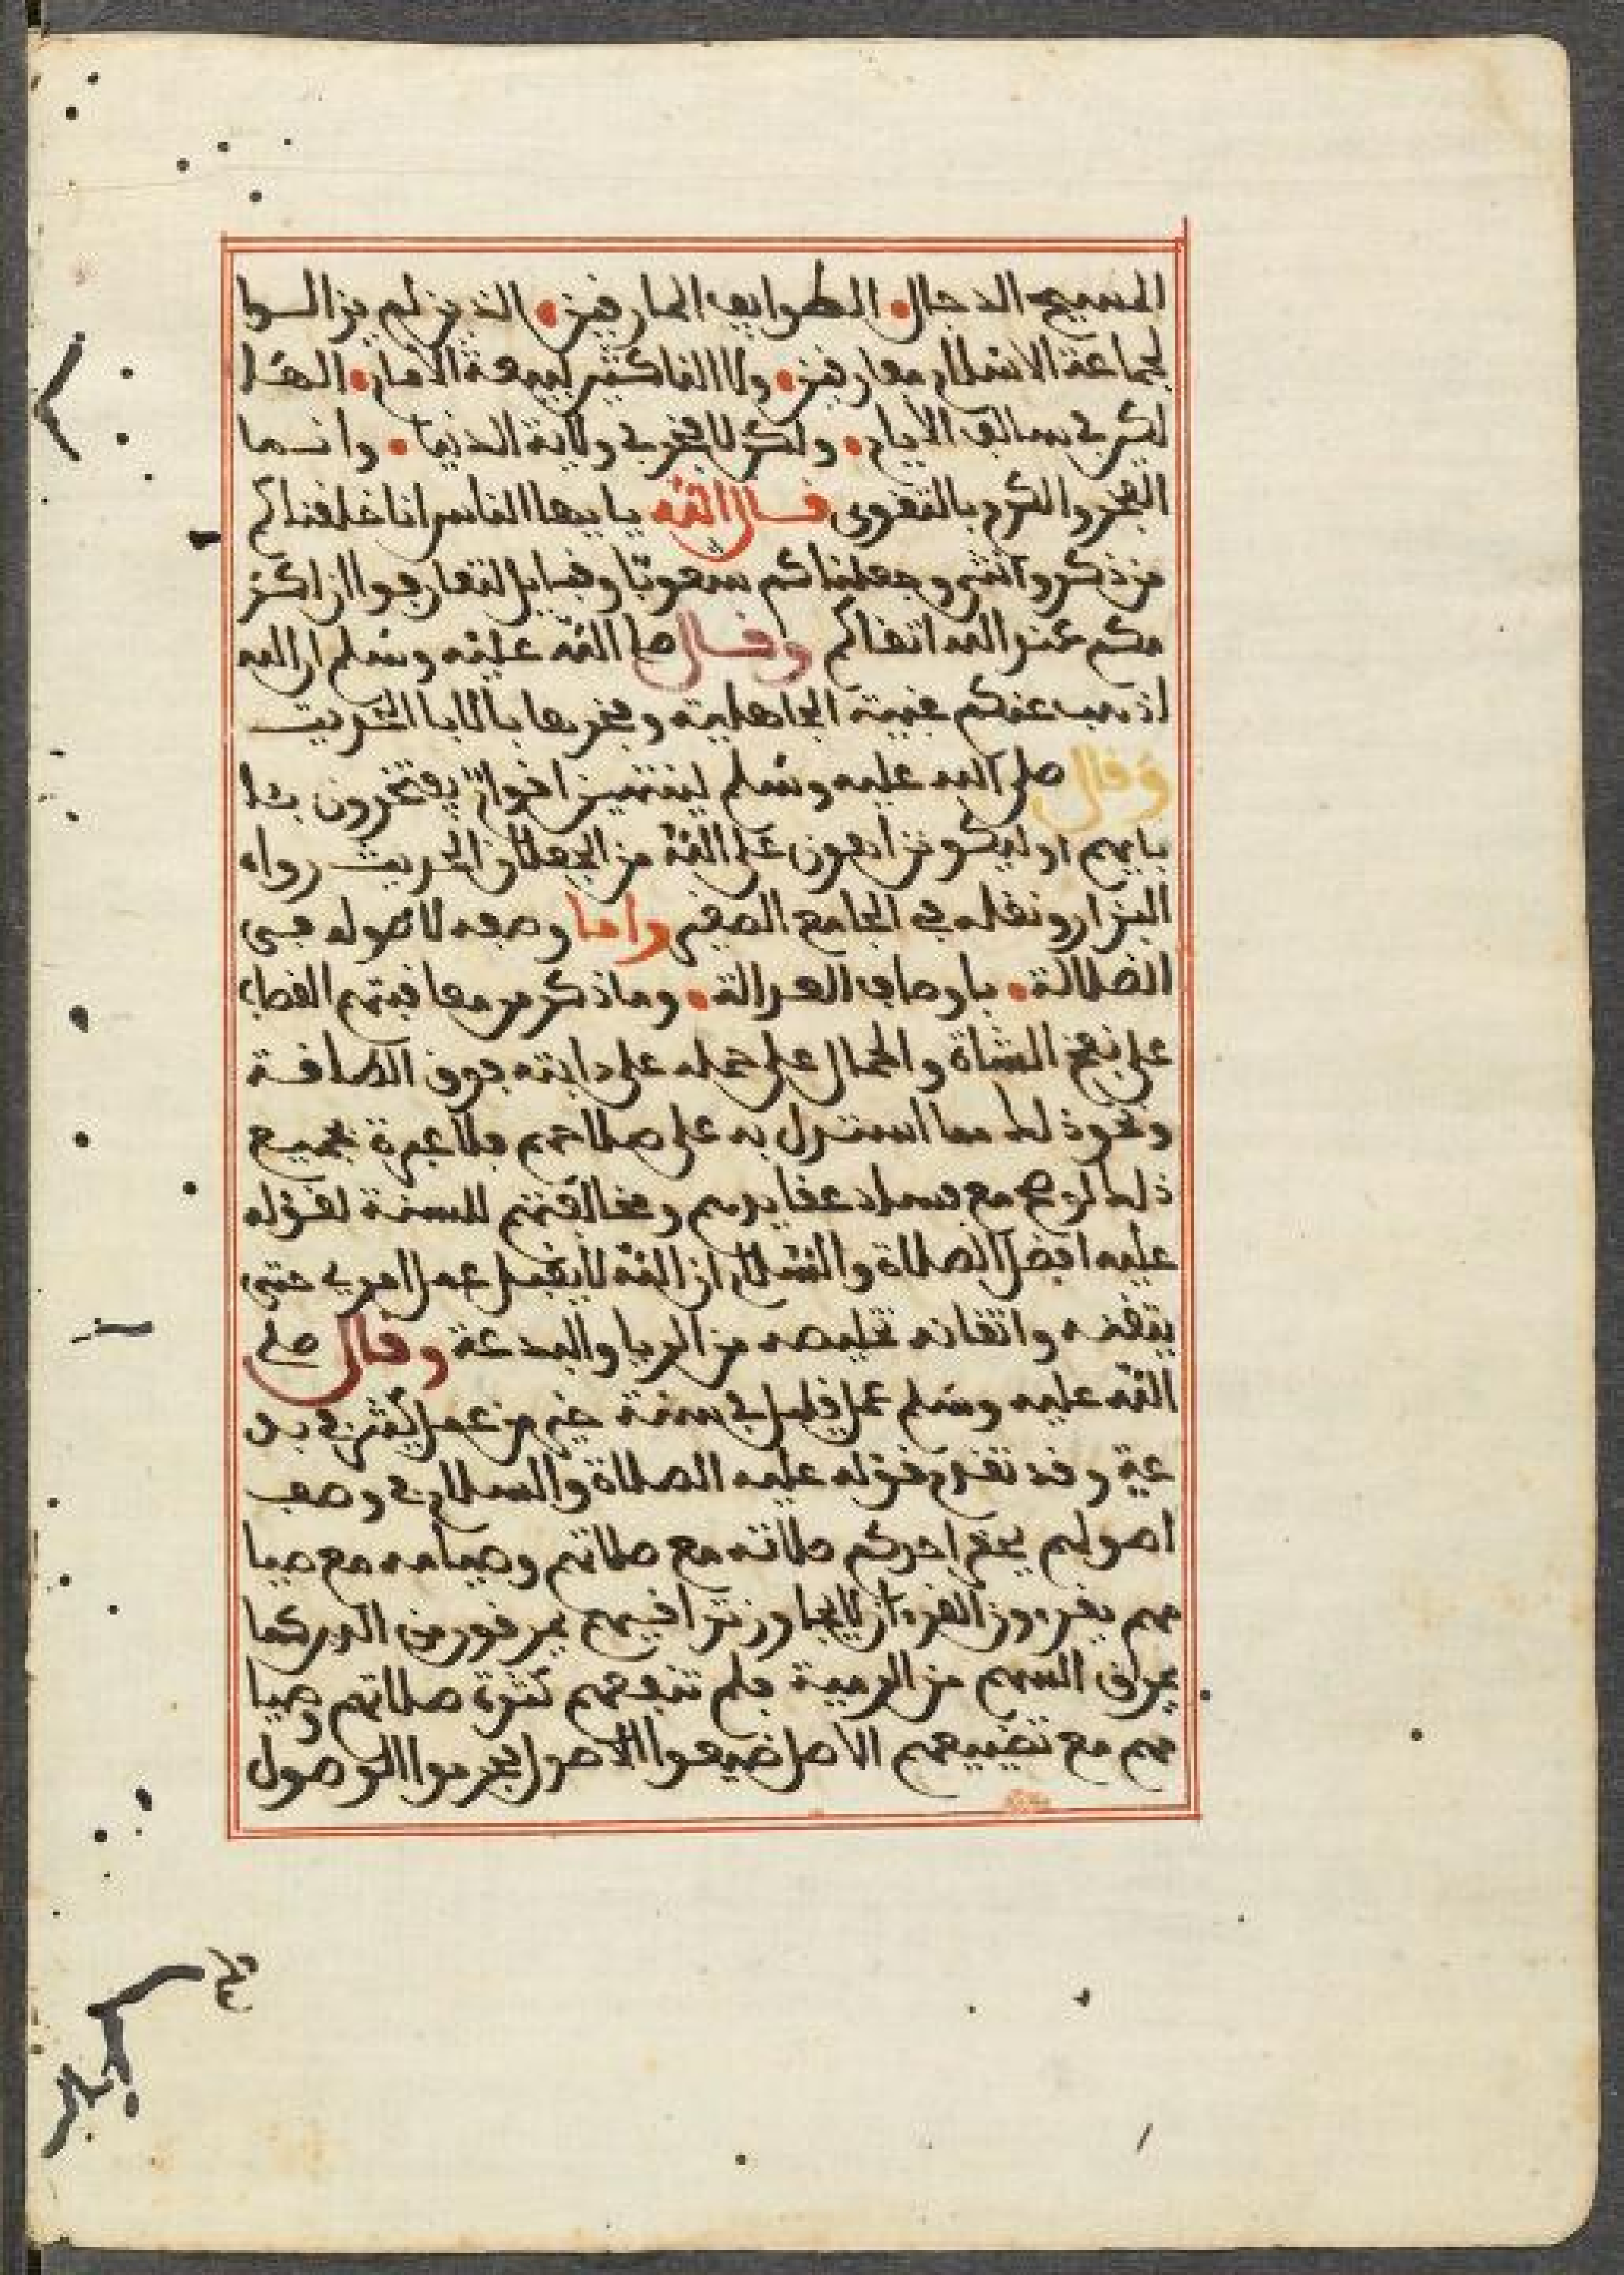 المسيح الدجال • الطوايف المارفين • الذين لم يزالـوا
لجماعة الاسلام مفارفين • ولا الناكثين لبيعة الامام •
ليس في سالف الايام • ولكن لا فخر في ولاية الدنيا • وانـما
الفخر والكرم بالتقوى فـال الله يا ايها الناس انا خلقناكم
من ذكر وانثى وجعلناكم شعوبا وقبايل لتعارفوا ان اكر
مكم عند الله اتقاكم وقـال صلى الله عليه وسلم ان الله
اذهب عنكم عبية الجاهلية وفخرها بالابا الحديث
وقال صلى الله عليه وسلم لينتهين اقوام يفتخرون بئا
بايهم او ليكونن اهون على الله من الجعلان الحديث رواه
البزار ونقله في الجامع الصغير واما وصفه لاصوله فى
الضلالة • باوصاف العدالة • وما ذكر من معاقبتهم القصاب
على نفخ الشاة والحمال على حمله على دابته فوق الطاقـة
ونحو ذلك مما استدل به على صلاحهم فلا عبرة بجميع
ذلك لو صح مع فساد عقايدهم ومخالفتهم للسنة لقـوله
عليه افضل الصلاة والسلام ان الله لا يقبل عمل امرئ حتى
يتقنه واتقانه تخليصه من الريا والبدعة وقال صلى
الله عليه وسلم عمل قليل في سنة خير من عمل كثير في بد
عة وقد تقدم قوله عليه الصلاة والسلام في وصف
اصولهم يحقر احدكم صلاته مع صلاتهم وصيامه مع صيا
مهم يقرءون القرءان لا يجاوز تراقيهم يمرقون من الدين كما
يمرق السهم من الرمية فلم تنفعهم كثرة صلاتهم وصيا
مهم مع تضييعهم الاصل ضيعوا الاصول فحرموا الوصول